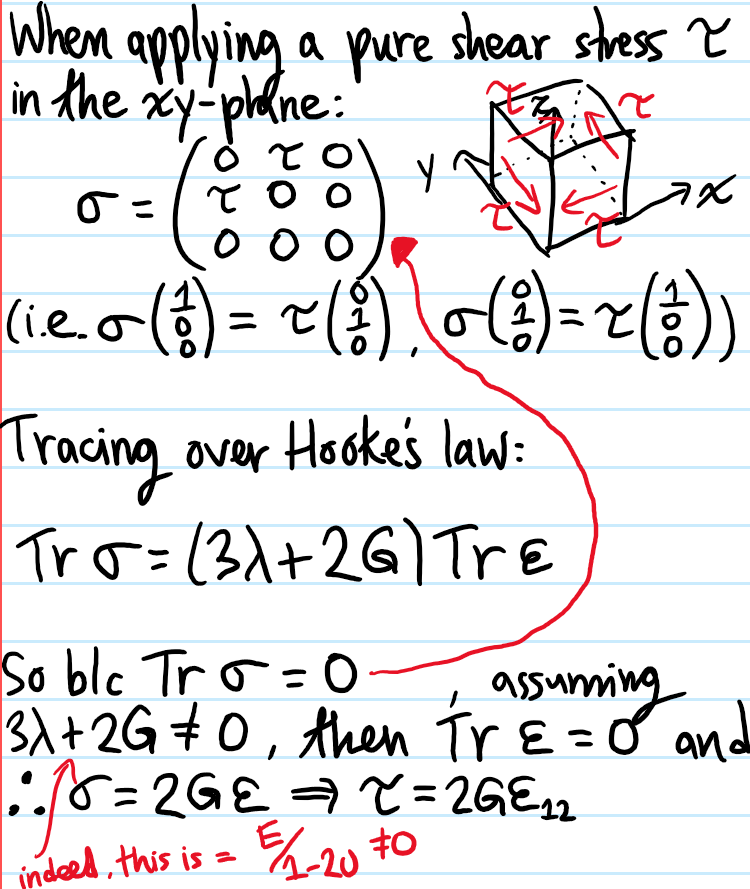 When applying a pure shear stress τ
in the xy-plane:
τ z τ
y x
τ τ
σ = (0 τ 0
τ 0 0
0 0 0)
(i.e. σ(1 0 0) = τ(0 1 0), σ(0 1 0) = τ(1 0 0))
Tracing over Hooke's law:
Tr σ = (3λ+2G) Tr ε
So b/c Tr σ = 0, assuming
3λ+2G ≠ 0, then Tr ε = 0 and
∴ σ = 2Gε ⇒ τ = 2Gε₁₂
indeed, this is = E/1-2υ ≠0